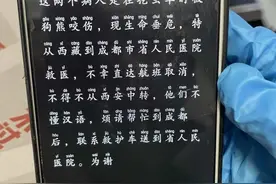 这两个病人是在
狗熊咬伤，现生命垂危，特
从西藏到成都市省人民医院
救医，不幸直达航班取消，
不得不从西安中转，他们不
懂汉语，烦请帮忙到成都
后，联系救护车送到省人民
医院。为谢